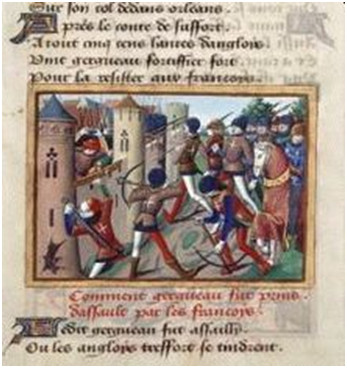 Sur son col dedans orleans.
Apres le conte de suffort.
A tout cinq cens lances danglois
Vint gergueau fortiffier fort
Pour la resister aux francois.
Comment gergueau fut prins
dassault par les francoys.
Ledit gergueau fut assailly.
Ou les anglois treffort se tindrent.